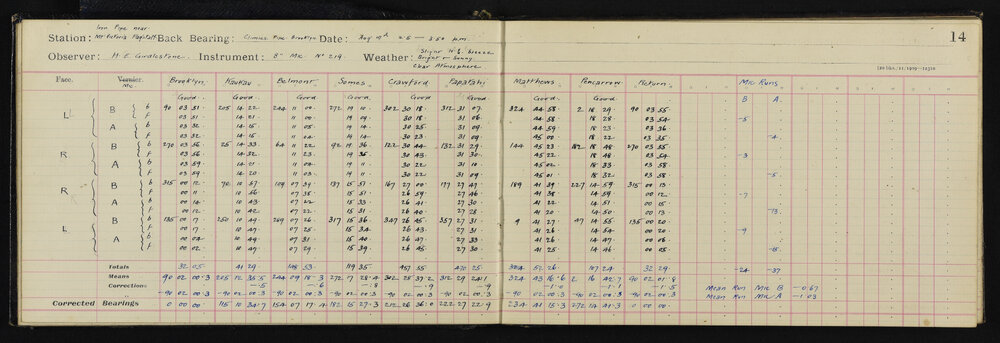 14
Iron Pipe near
Station: Mt Victoria Flagstaff Back Bearing: Climies Pipe Brooklyn Date: Aug 9th 2.5 — 3.50 pm
Observer: H. E. Girdlestone. Instrument: 8" Mic No 219. Weather: Slight N'ly breeze
Bright & Sunny
Clear Atmosphere.
Face. Vernier. Mic. Brooklyn Kaukau Belmont Somes Crawford Papatahi Matthews Pencarrow Return Mic Runs
Good. Good. Good. Good. Good. Good. Good. Good. Good. B A
L B b 90 03 51. 205 14 22 244 11 00. 272 19 11. 302 30 18. 312 31 07. 324 44 58. 2 18 29 90 03 55
f 03 51. 14 21. 11 00. 19 09. 30 18. 31 06. 44 58 18 28 03 54. -5
A b 03 32. 14 15. 11 05. 19 14. 30 25. 31 09. 44 59 18 23 03 36
f 03 32. 14 15. 11 04. 19 14. 30 23. 31 09. 45 00. 18 22 03 35 -4.
R B b 270 03 56 25 14 33. 64 11 22 92 19 36 122 30 44 132 31 29. 144 45 23. 182 18 48 270 03 55
f 03 56. 14 32. 11 23. 19 35. 30 43. 31 30. 45 22 18 48 03 54. -3
A b 03 59. 14 21 11 04. 19 11. 30 22 31 10. 45 02 18 33 03 58
f 03 59. 14 20 11 03. 19 11. 30 22 31 09. 45 01 18 32 03 58. -5.
R B b 315 00 12 70 10 57 109 07 39. 137 15 57 167 27 00 177 27 47 189 41 39 227 14 59 315 00 13.
f 00 11 10 56 07 35 15 57. 26 59 27 46 41 38 14 59 00 12 -7
A b 00 14 10 43 07 22 15 33 26 41 27 30 41 22 14 51 00 15
f 00 12 10 42 07 22 15 31 26 40 27 28 41 20 14 50 00 13 -13.
L B b 135 00 17 250 10 49 289 07 26 317 15 36 347 26 45 357 27 31 9 41 27 47 14 55 135 00 20
f 00 17. 10 47 07 25 15 34 26 43. 27 31 41 26 14 54 00 20. -9
A b 00 04 10 49 07 31 15 40 26 47 27 33 41 26 14 47 00 06
f 00 02 10 47 07 29 15 39. 26 45 27 30 41 25 14 46 00 05 -15.
Totals 32 05. 41 29 108 53. 119 35 457 55 470 25 52 26 107 24 32 29. -24 -37
Means 90 02 00.3 205 12 35.5 244 09 18.3 272 17 28.4 302 28 37.2 312 29 24.1 324 43 16.6 2 16 42.7 90 02 01.8
Correction: -.5 -.6 -.8 -.9 -.9 -1.0 -1.1 -1.5 Mean Run Mic B -0.67
-90 02 00.3 -90 02 00.3 -90 02 00.3 -90 02 00.3 -90 02 00.3 -90 02 00.3 -90 02 00.3 -90 02 00.3 -90 02 00.3 Mean Run Mic A -1.03
Corrected Bearings 0 00 00 115 10 34.7 154 07 17.4 182 15 27.3 212 26 36.0 222 27 22.9 234 41 15.3 272 14 41.3 0 00 00.